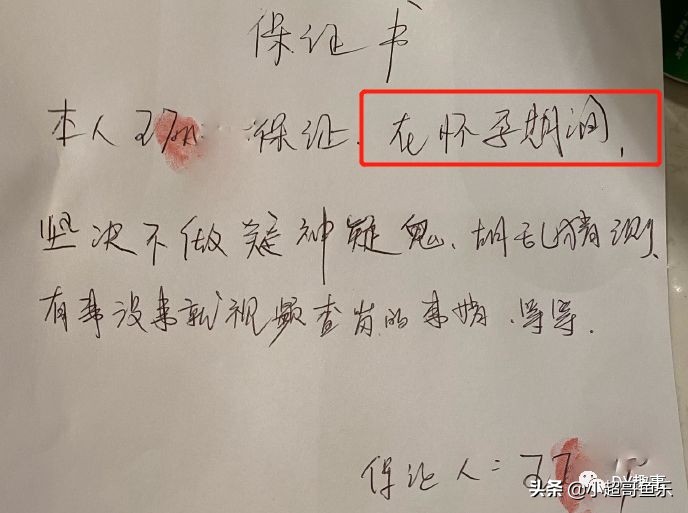 保证书
本人 保证.在怀孕期间,
坚决不做疑神疑鬼、胡乱猜测、
有事没事就视频查岗的事情.等等.
保证人:
DY趣事
头条 @小超哥鱼乐